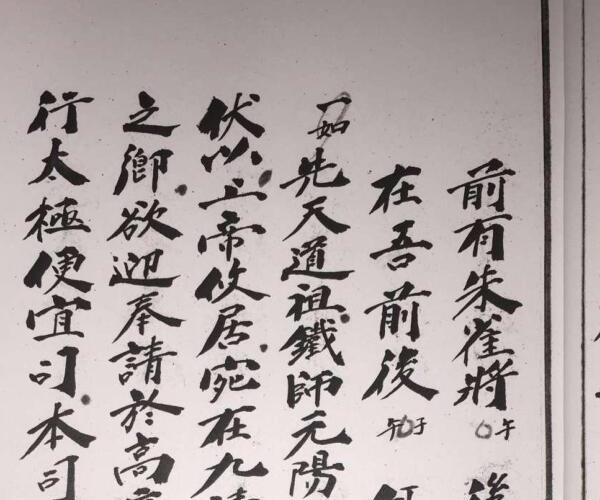 前有朱雀將午
在吾前後子午
一如先天道祖鐵師元陽
伏以上帝攸居宛在九清
之鄉欲迎奉請於高
行太極便宜司本司